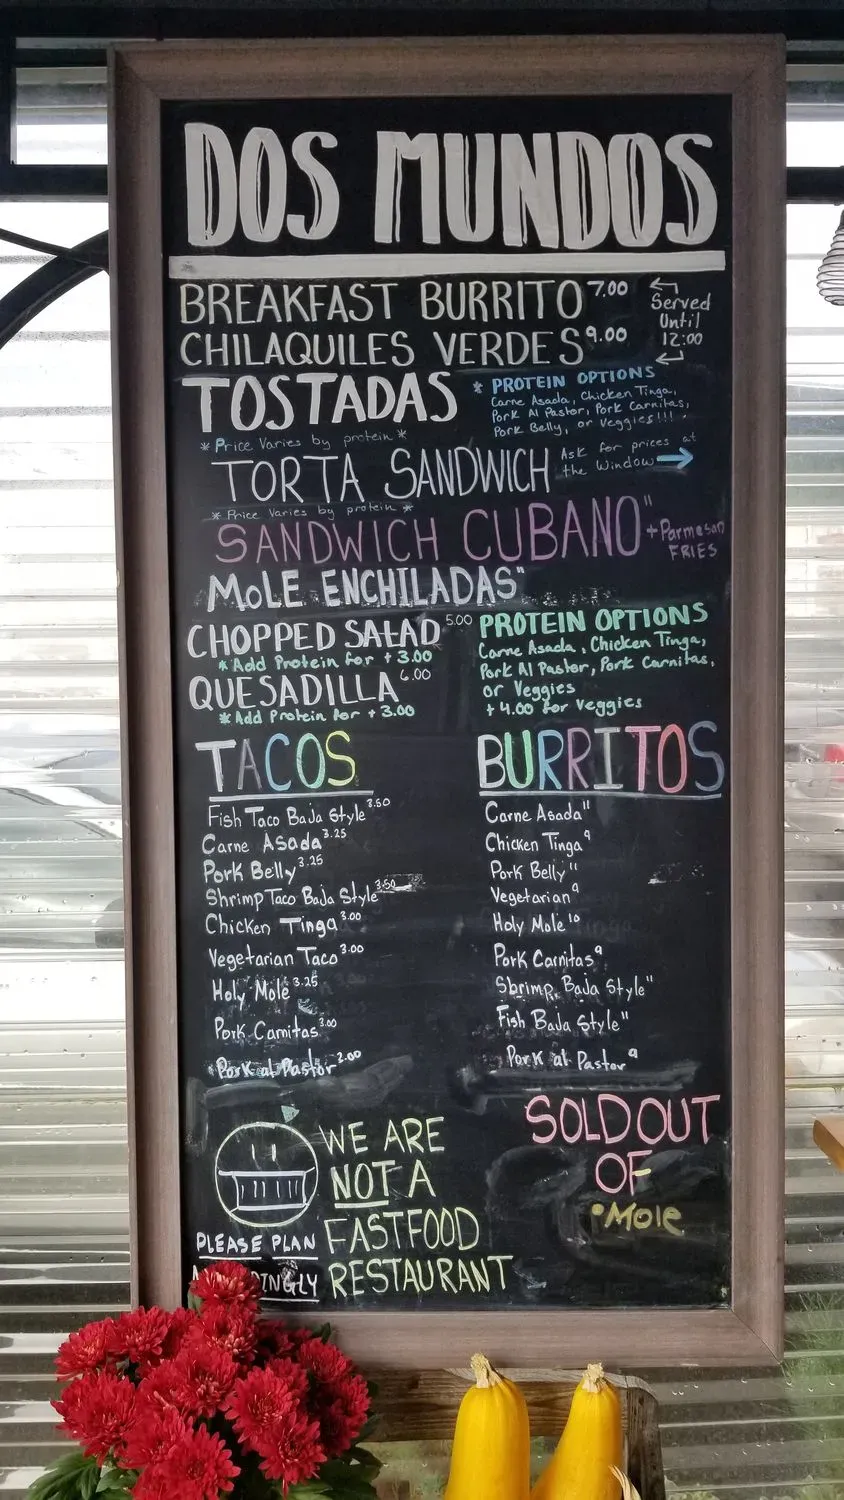 DOS MUNDOS
BREAKFAST BURRITO 7.00
CHILAQUILES VERDES 9.00
Served
Until
12:00
TOSTADAS
* Price Varies by protein *
* PROTEIN OPTIONS
Carne Asada, Chicken Tinga,
Pork Al Pastor, Pork Carnitas,
Pork Belly, or Veggies!!!
TORTA SANDWICH
* Price Varies by protein *
Ask for prices at
the Window →
SANDWICH CUBANO 11
+Parmesan
FRIES
MOLE ENCHILADAS 11
CHOPPED SALAD 5.00
* Add Protein for + 3.00
QUESADILLA 6.00
* Add Protein for + 3.00
PROTEIN OPTIONS
Carne Asada, Chicken Tinga,
Pork Al Pastor, Pork Carnitas,
or Veggies
+ 4.00 for Veggies
TACOS
Fish Taco Baja Style 3.50
Carne Asada 3.25
Pork Belly 3.25
Shrimp Taco Baja Style 3.50
Chicken Tinga 3.00
Vegetarian Taco 3.00
Holy Mole 3.25
Pork Carnitas 3.00
Pork al Pastor
BURRITOS
Carne Asada 11
Chicken Tinga 9
Pork Belly 11
Vegetarian 9
Holy Mole 10
Pork Carnitas 9
Shrimp Baja Style 11
Fish Baja Style 11
Pork al Pastor 9
WE ARE
NOT A
FASTFOOD
RESTAURANT
PLEASE PLAN
SOLD OUT
OF
•Mole